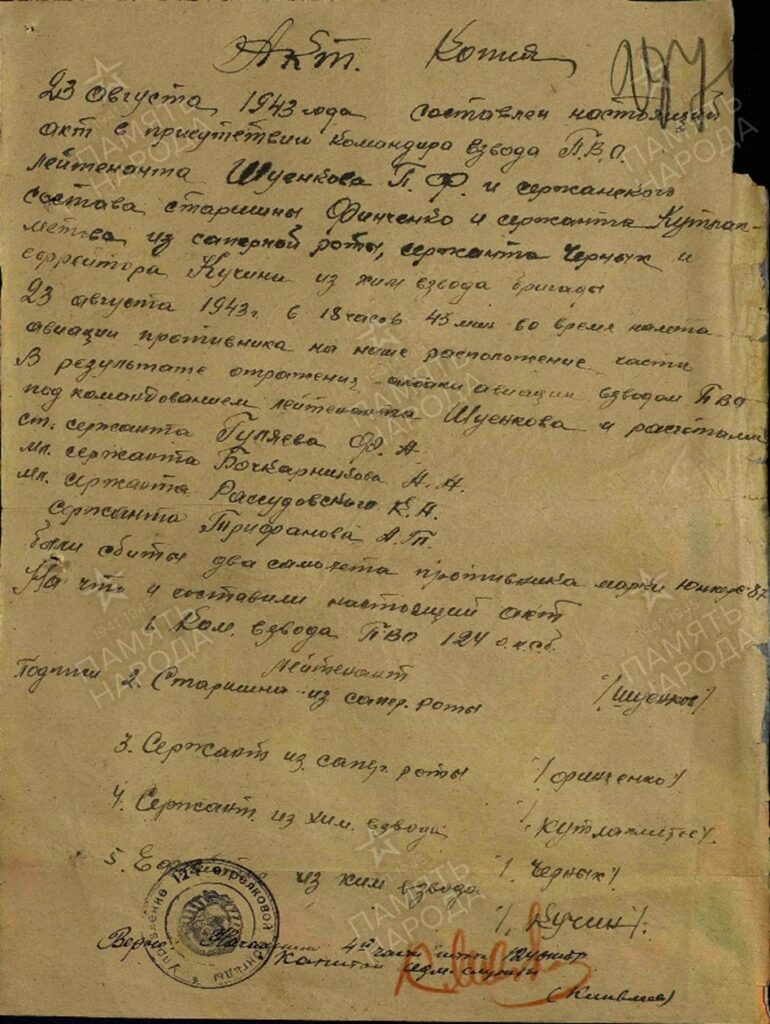 Акт. Копия
23 августа 1943 года составлен настоящий
акт в присутствии командира взвода П.В.О.
лейтенанта Шуенкова П. Ф. и сержанского
состава старшины Финченко и сержанта Кутлак-
метьва из саперной роты, сержанта Черных и
ефрейтора Кучина из хим взвода бригады
23 августа 1943г. в 18 часов 45 мин во время налета
авиации противника на наше расположение части
В результате отражения авиации взводом ПВО
под командованием лейтенанта Шуенкова и расчетами
ст. сержанта Гуляева Ф. А
мл. сержанта Бочкарникова А. Н.
мл. сержанта Рассудовского К. Н.
сержанта Трифанова А. П.
были сбиты два самолета противника марки Юнкерс-87
На что и составили настоящий акт
1. Ком. взвода ПВО 124 о.к.с.б.
лейтенант /Шуенков/
Подписи 2. Старшина из сапер. роты
3. Сержант из сапер. роты /Финченко/
4. Сержант из хим. взвода /Кутлахметьев/
5. из хим взвода /Черных/
/Кучин/.
Управление 124 стрелковой бригады
Верно: Начальник 4й части штаба
Капитан адм. службы
ПАМЯТЬ НАРОДА
ПАМЯТЬ НАРОДА
ПАМЯТЬ НАРОДА
ПАМЯТЬ НАРОДА
ПАМЯТЬ НАРОДА
ПАМЯТЬ НАРОДА
ПАМЯТЬ НАРОДА